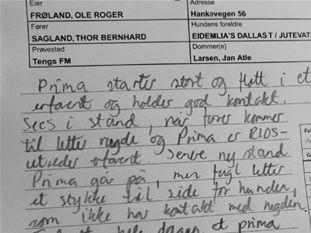 Eier
Adresse
FRØLAND, OLE ROGER
Hankovegen 56
Fører
Hundens foreldre
SAGLAND, THOR BERNHARD
EIDEMLIA'S DALLAS T / JUTEVAT
Prøvested
Dommer(e)
Tengs FM
Larsen, Jan Atle
Prima starter stort og flott i et
erfarent og holder god kontakt.
Sees i stand, når fører kommer
til letter rugde og Prima er RIOS-
utreder erfarent. Senere ny stand
Prima går på, men fugl letter
et stykke til side for hunden,
som ikke har kontakt med rugden.
dagen et prima